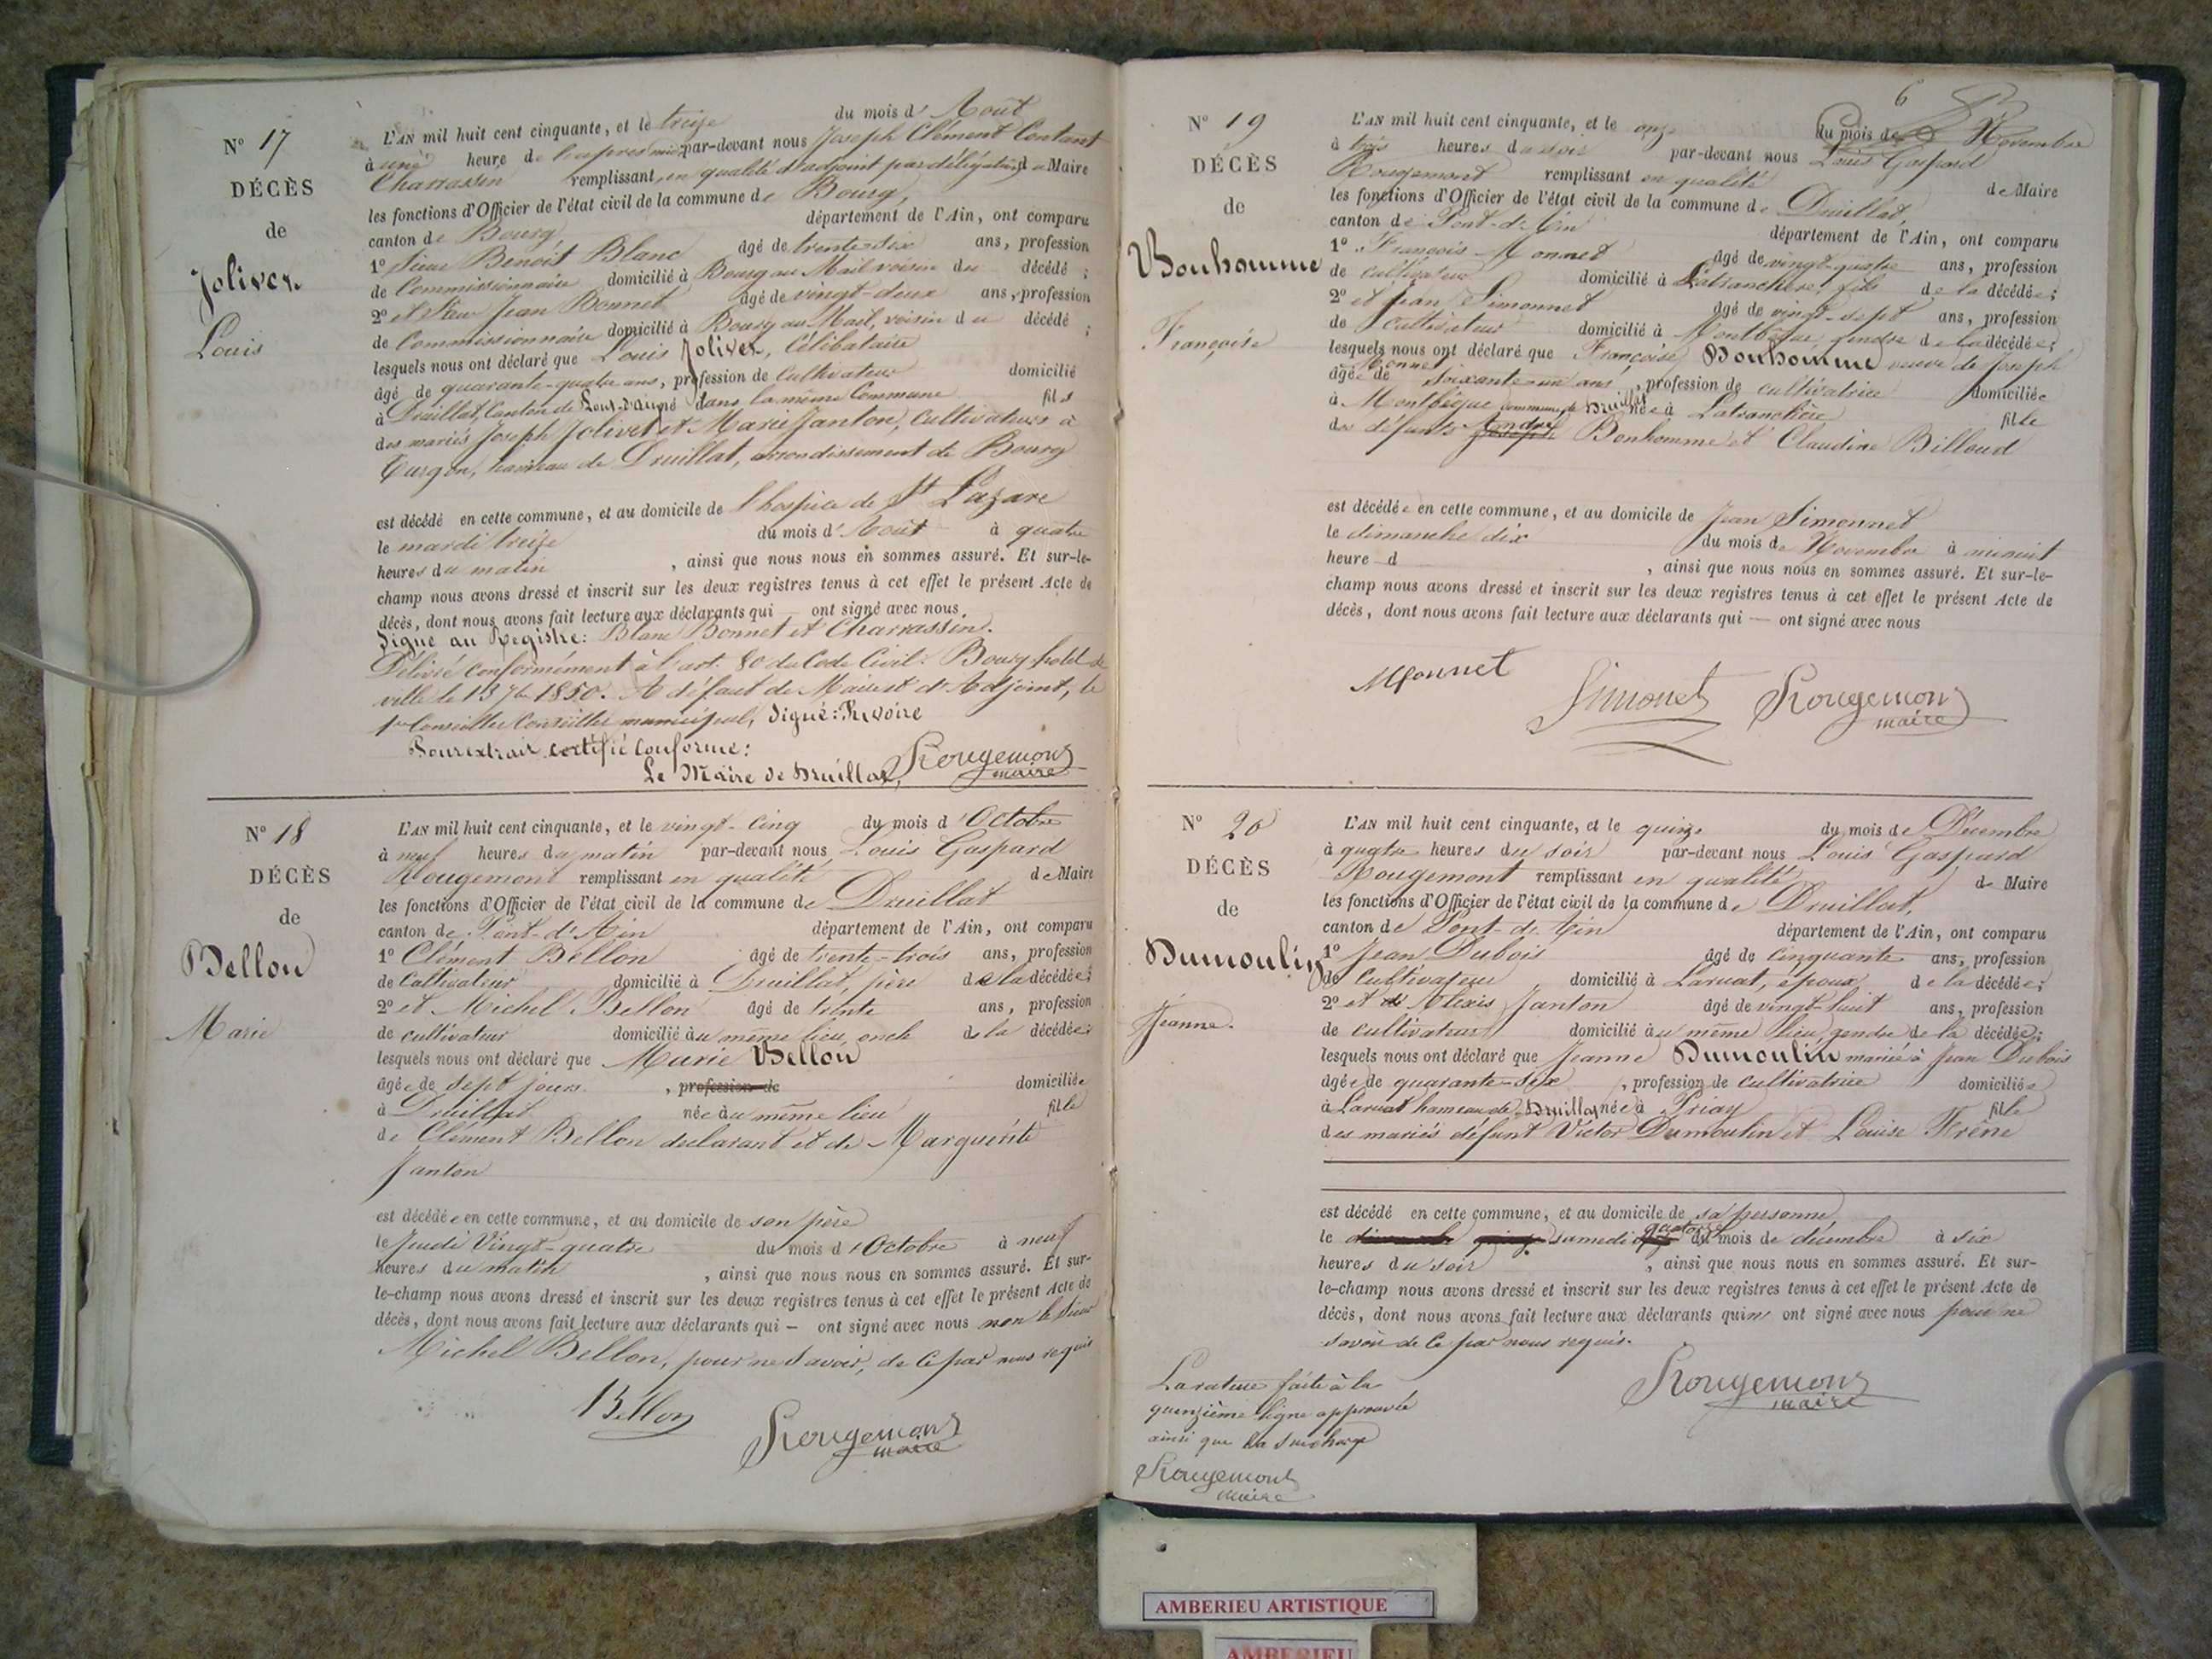 N° 17
DÉCÈS
de
Jolivet
Louis
L'AN mil huit cent cinquante, et le treize du mois d'Août
à une heure de l'après midi par-devant nous Joseph Clément Contant
Charrassin remplissant, en qualité d'adjoint par délégation du Maire
les fonctions d'Officier de l'état civil de la commune de Bourg,
canton de Bourg département de l'Ain, ont comparu
1° Sieur Benoit Blanc âgé de trente-six ans, profession
de Commissionnaire domicilié à Bourg au Mail voisin du décédé ;
2° et Sieur Jean Bonnet âgé de vingt-deux ans, profession
de Commissionnaire domicilié à Bourg au Mail, voisin du décédé ;
lesquels nous ont déclaré que Louis Jolivet, Célibataire
âgé de quarante-quatre ans, profession de Cultivateur domicilié
à Druillat Canton de Pont-d'ain né dans la même Commune fils
des mariés Joseph Jolivet et Marie Janton, Cultivateurs à
Turgon, hameau de Druillat, arrondissement de Bourg
est décédé en cette commune, et au domicile de l'hospice de St Lazare
le mardi treize du mois d'Août à quatre
heures du matin , ainsi que nous nous en sommes assuré. Et sur-le-
champ nous avons dressé et inscrit sur les deux registres tenus à cet effet le présent Acte de
décès, dont nous avons fait lecture aux déclarants qui — ont signé avec nous.
Signé au Registre: Blanc Bonnet et Charrassin.
Délivré conformément à l'art. 80 du Code Civil: Bourg hotel de
ville le 13 7bre 1850. A défaut de Maire et d'Adjoint, le
1er Conseiller Conseiller municipal, Signé: Rivoire
Pour extrait certifié Conforme:
Le Maire de Druillat, Rougemont
maire
N° 18
DÉCÈS
de
Bellon
Marie
L'AN mil huit cent cinquante, et le vingt-cinq du mois d'Octobre
à neuf heures du matin par-devant nous Louis Gaspard
Rougemont remplissant en qualité de Maire
les fonctions d'Officier de l'état civil de la commune de Druillat
canton de Pont-d'Ain département de l'Ain, ont comparu
1° Clément Bellon âgé de trente-trois ans, profession
de Cultivateur domicilié à Druillat, père de la décédée;
2° et Michel Bellon âgé de trente ans, profession
de cultivateur domicilié au même lieu, oncle de la décédée;
lesquels nous ont déclaré que Marie Bellon
âgée de sept jours , profession de domiciliée
à Druillat née au même lieu fille
de Clément Bellon déclarant et de Marguerite
Janton
est décédée en cette commune, et au domicile de son père
le Jeudi Vingt-quatre du mois d'Octobre à neuf
heures du matin , ainsi que nous nous en sommes assuré. Et sur-
le-champ nous avons dressé et inscrit sur les deux registres tenus à cet effet le présent Acte de
décès, dont nous avons fait lecture aux déclarants qui — ont signé avec nous non le Sieur
Michel Bellon, pour ne savoir, de ce par nous requis
Bellon
Rougemont
maire
6
N° 19
DÉCÈS
de
Bonhomme
Françoise
L'AN mil huit cent cinquante, et le onze du mois de Novembre
à trois heures du soir par-devant nous Louis Gaspard
Rougemont remplissant en qualité de Maire
les fonctions d'Officier de l'état civil de la commune de Druillat,
canton de Pont-d'Ain département de l'Ain, ont comparu
1° François Monnet âgé de vingt-quatre ans, profession
de cultivateur domicilié à Latranchère, fils de la décédée;
2° et Jean Simonnet âgé de vingt-sept ans, profession
de Cultivateur domicilié à Montbègue, gendre de la décédée;
lesquels nous ont déclaré que Françoise Bonhomme veuve de Joseph
Monnet
âgée de soixante-un ans , profession de cultivatrice domiciliée
à Montbègue commune de Druillat née à Latranchère fille
des défunts André Bonhomme et Claudine Billoud
est décédée en cette commune, et au domicile de Jean Simonnet
le dimanche dix du mois de Novembre à minuit
heure d , ainsi que nous nous en sommes assuré. Et sur-le-
champ nous avons dressé et inscrit sur les deux registres tenus à cet effet le présent Acte de
décès, dont nous avons fait lecture aux déclarants qui — ont signé avec nous
Monnet
Simonet
Rougemont
maire
N° 20
DÉCÈS
de
Dumoulin
Jeanne.
L'AN mil huit cent cinquante, et le quinze du mois de Décembre
à quatre heures du soir par-devant nous Louis Gaspard
Rougemont remplissant en qualité de Maire
les fonctions d'Officier de l'état civil de la commune de Druillat,
canton de Pont-d'Ain département de l'Ain, ont comparu
1° Jean Dubois âgé de cinquante ans, profession
de Cultivateur domicilié à Laruat, époux de la décédée;
2° et Alexis Janton âgé de vingt-huit ans, profession
de cultivateur domicilié au même lieu, gendre de la décédée;
lesquels nous ont déclaré que Jeanne Dumoulin mariée à Jean Dubois
âgée de quarante-six , profession de cultivatrice domiciliée
à Laruat hameau de Druillat née à Priay fille
des mariés défunt Victor Dumoulin et Louise Frêne
est décédé en cette commune, et au domicile de sa personne
le dimanche quinze samedi quatorze du mois de décembre à six
heures du soir , ainsi que nous nous en sommes assuré. Et sur-
le-champ nous avons dressé et inscrit sur les deux registres tenus à cet effet le présent Acte de
décès, dont nous avons fait lecture aux déclarants qui n' ont signé avec nous pour ne
savoir de ce par nous requis.
Rougemont
maire
La rature faite à la
quinzième ligne approuvée
ainsi que la surcharge
Rougemont
maire
AMBERIEU ARTISTIQUE
AMBERIEU